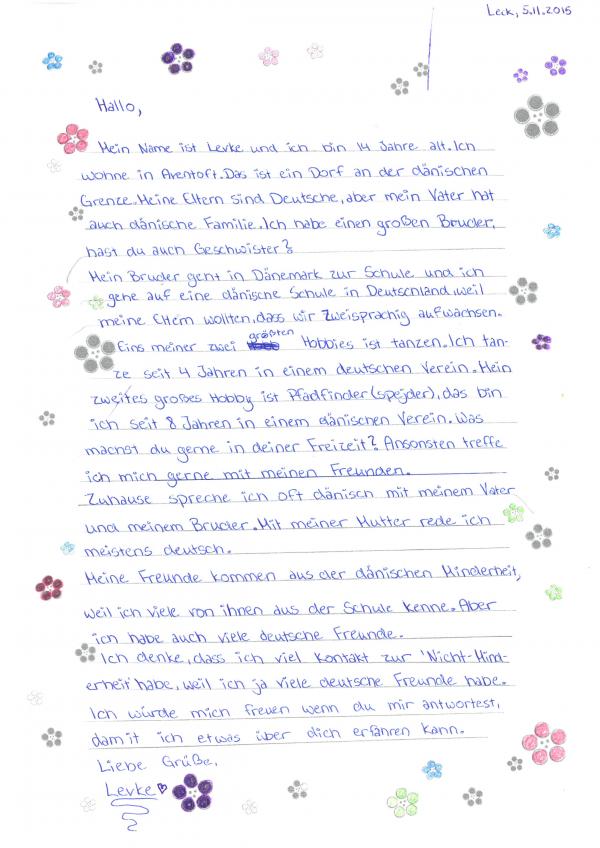 Leck, 5.11.2015
Hallo,
Mein Name ist Levke und ich bin 14 Jahre alt. Ich
wohne in Aventoft. Das ist ein Dorf an der dänischen
Grenze. Meine Eltern sind Deutsche, aber mein Vater hat
auch dänische Familie. Ich habe einen großen Bruder,
hast du auch Geschwister?
Mein Bruder geht in Dänemark zur Schule und ich
gehe auf eine dänische Schule in Deutschland, weil
meine Eltern wollten, dass wir zweisprachig aufwachsen.
Eins meiner zwei größten Hobbies ist tanzen. Ich tan-
ze seit 4 Jahren in einem deutschen Verein. Mein
zweites großes Hobby ist Pfadfinder (spejder), das bin
ich seit 8 Jahren in einem dänischen Verein. Was
machst du gerne in deiner Freizeit? Ansonsten treffe
ich mich gerne mit meinen Freunden.
Zuhause spreche ich oft dänisch mit meinem Vater
und meinem Bruder. Mit meiner Mutter rede ich
meistens deutsch.
Meine Freunde kommen aus der dänischen Minderheit,
weil ich viele von ihnen aus der Schule kenne. Aber
ich habe auch viele deutsche Freunde.
Ich denke, dass ich viel Kontakt zur 'Nicht-Mind-
erheit' habe, weil ich ja viele deutsche Freunde habe.
Ich würde mich freuen wenn du mir antwortest,
damit ich etwas über dich erfahren kann.
Liebe Grüße,
Levke